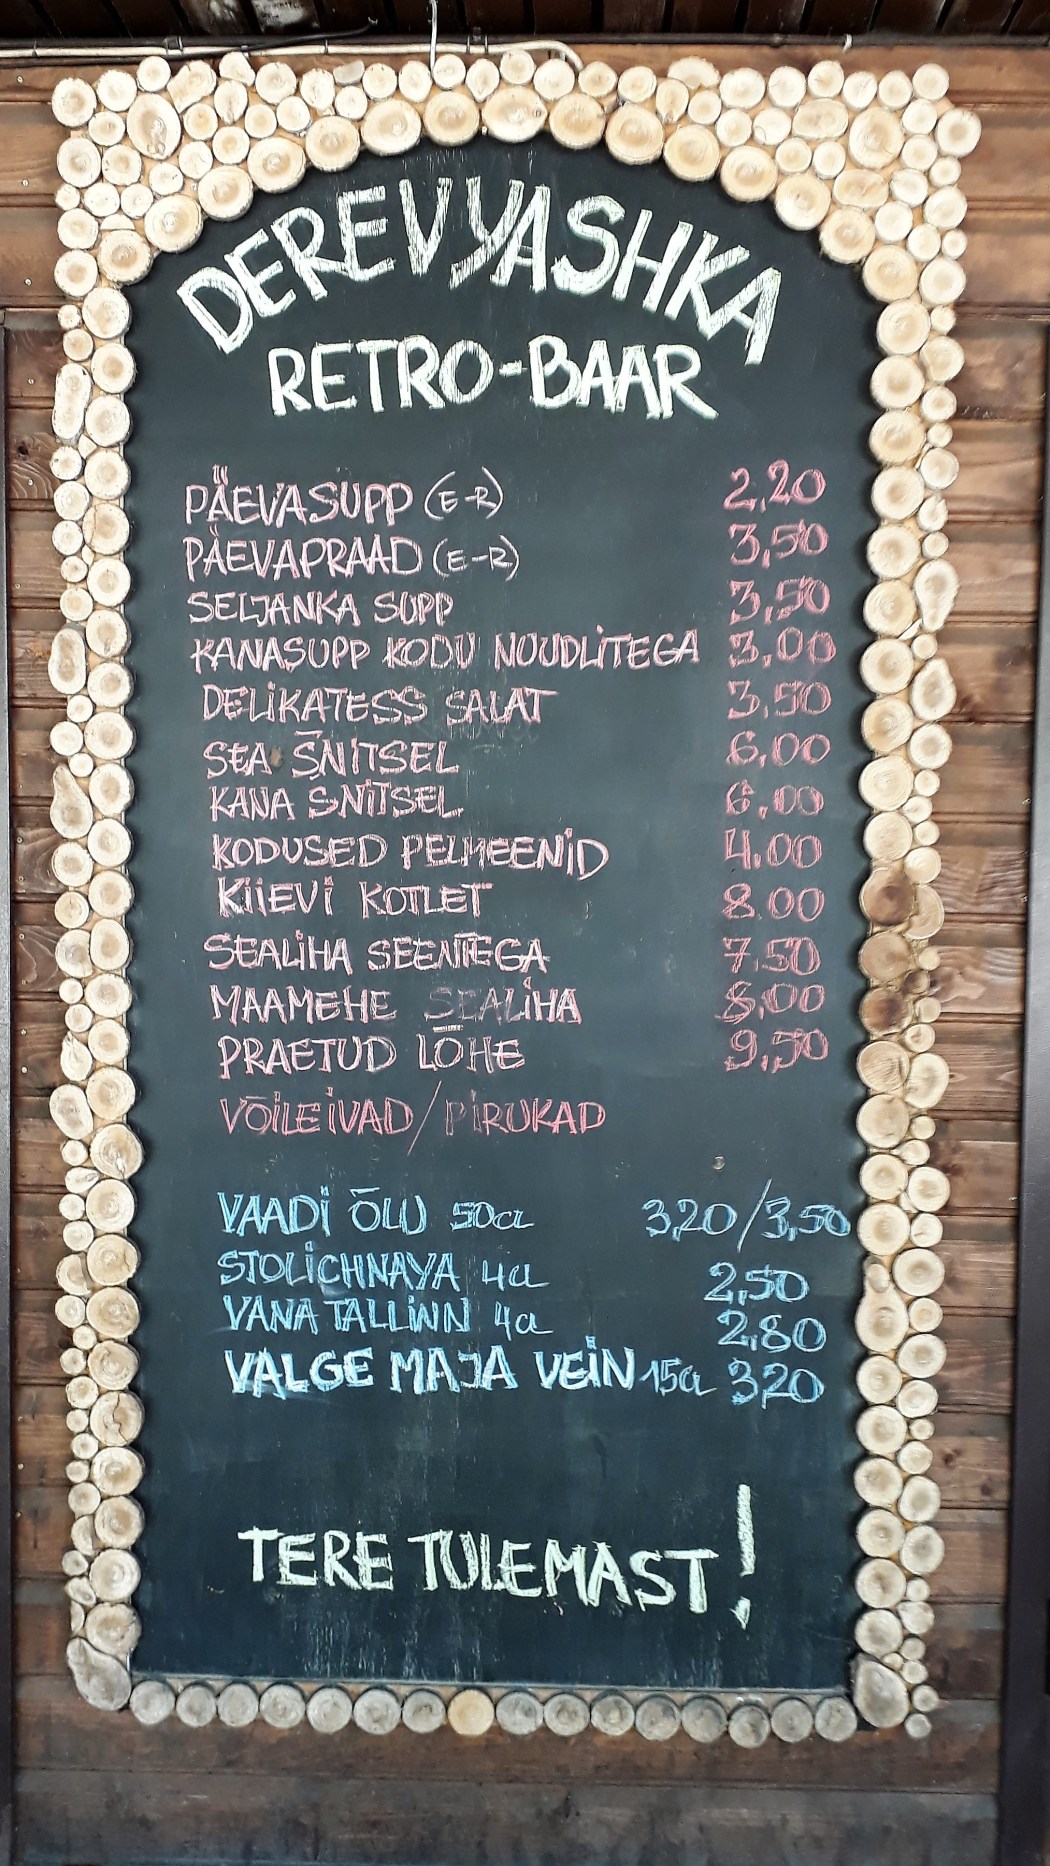 DEREVYASHKA
RETRO-BAAR
PÄEVASUPP (E-R) 2,20
PÄEVAPRAAD (E-R) 3,50
SELJANKA SUPP 3,50
KANASUPP KODU NUUDLITEGA 3,00
DELIKATESS SALAT 3,50
SEA ŠNITSEL 6,00
KANA ŠNITSEL 6,00
KODUSED PELMEENID 4.00
KIIEVI KOTLET 8.00
SEALIHA SEENTEGA 7,50
MAAMEHE SEALIHA 8,00
PRAETUD LÕHE 9,50
VÕILEIVAD/PIRUKAD
VAADI ÕLU 50CL 3,20/3,50
STOLICHNAYA 4CL 2,50
VANA TALLINN 4CL 2,80
VALGE MAJA VEIN 15CL 3,20
TERE TULEMAST!